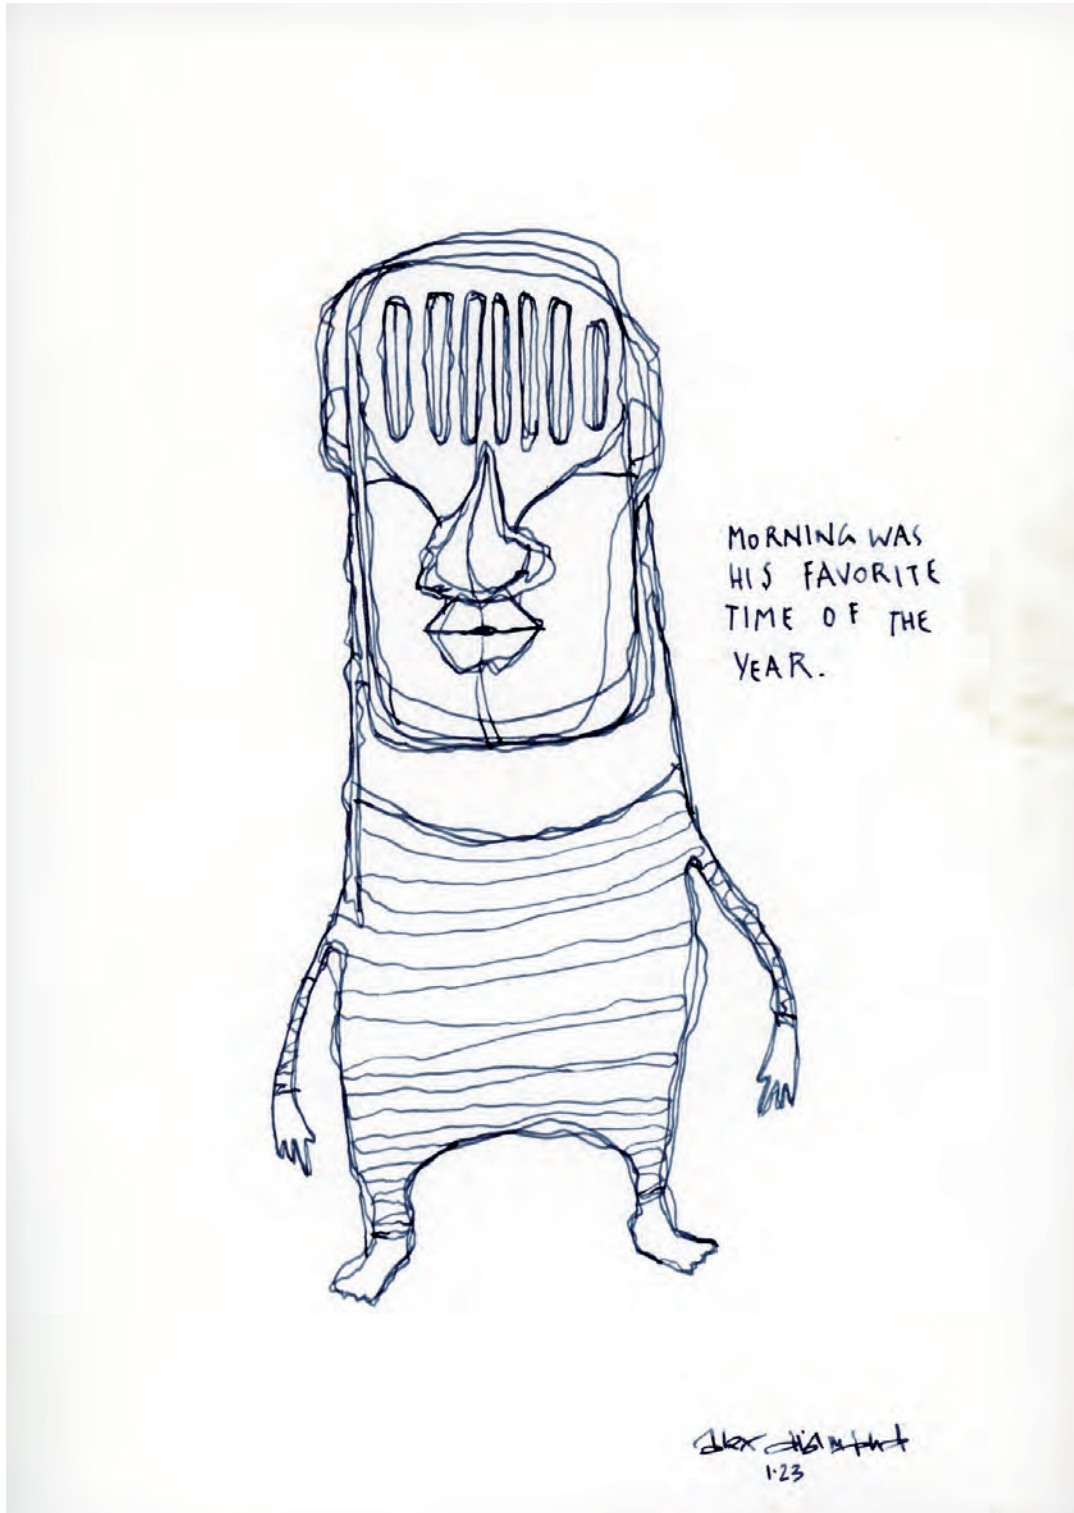 MORNING WAS
HIS FAVORITE
TIME OF THE
YEAR.
alex
1·23